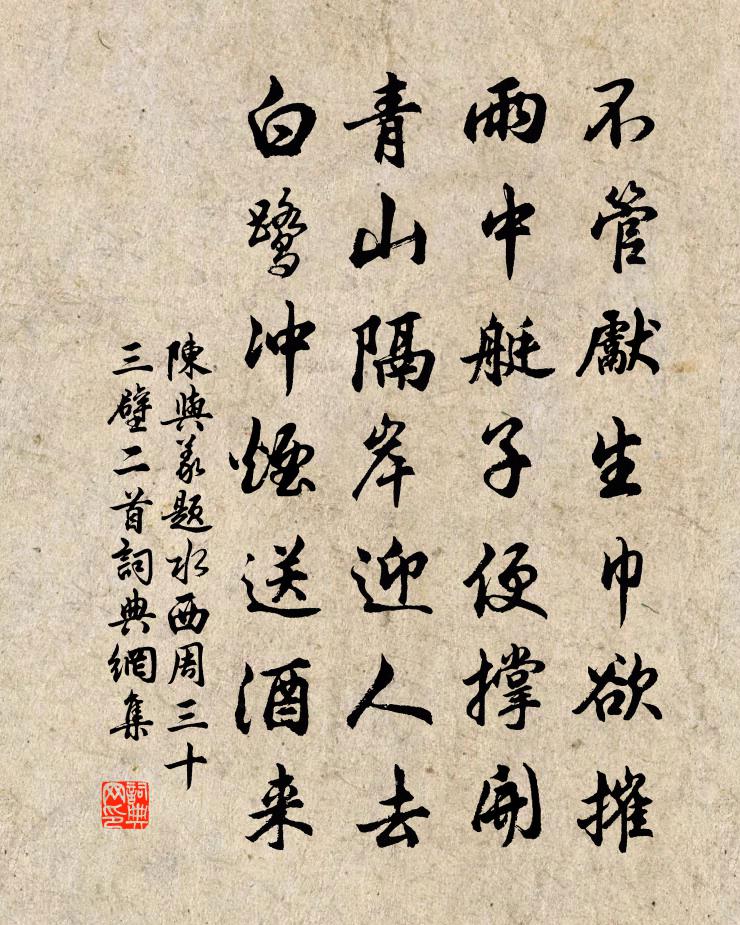 不管獻生巾欲摧
雨中艇子便撐開
青山隔岸迎人去
白鹭冲煙送酒来
陳與義題水西周三十
三壁二首詞典網集
詞典
网印